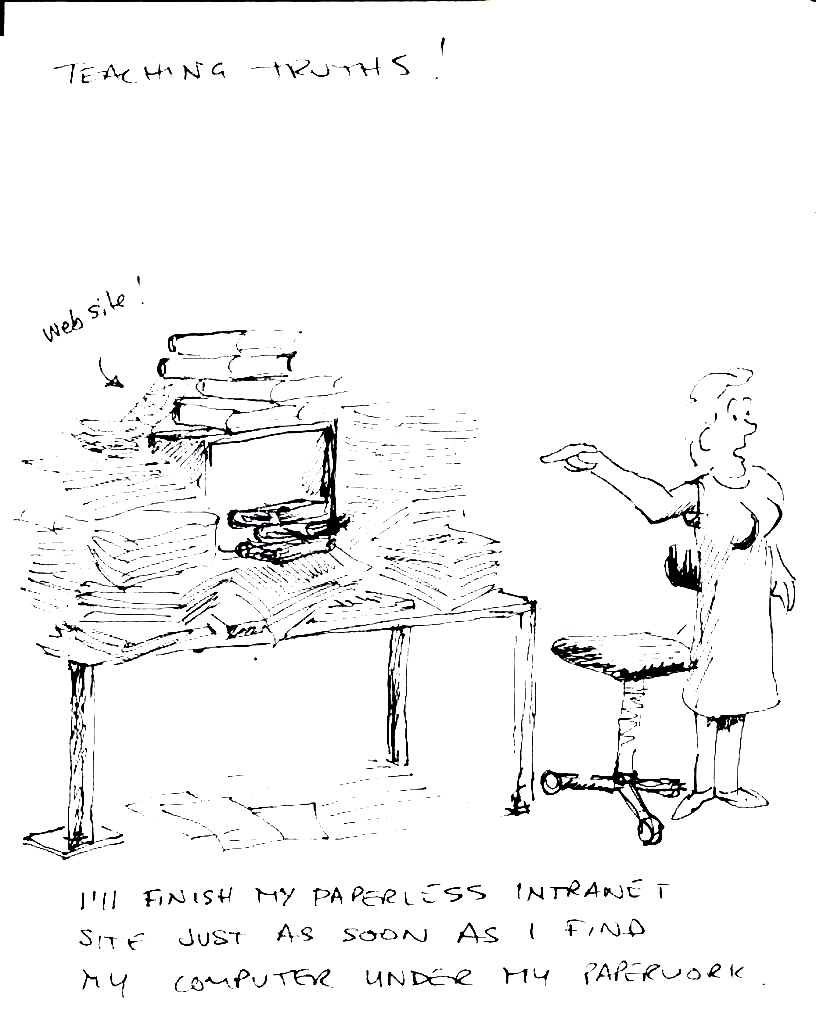 TEACHING TRUTHS!
Web site!
I'll FINISH MY PAPERLESS INTRANET
SITE JUST AS SOON AS I FIND
MY COMPUTER UNDER MY PAPERWORK.